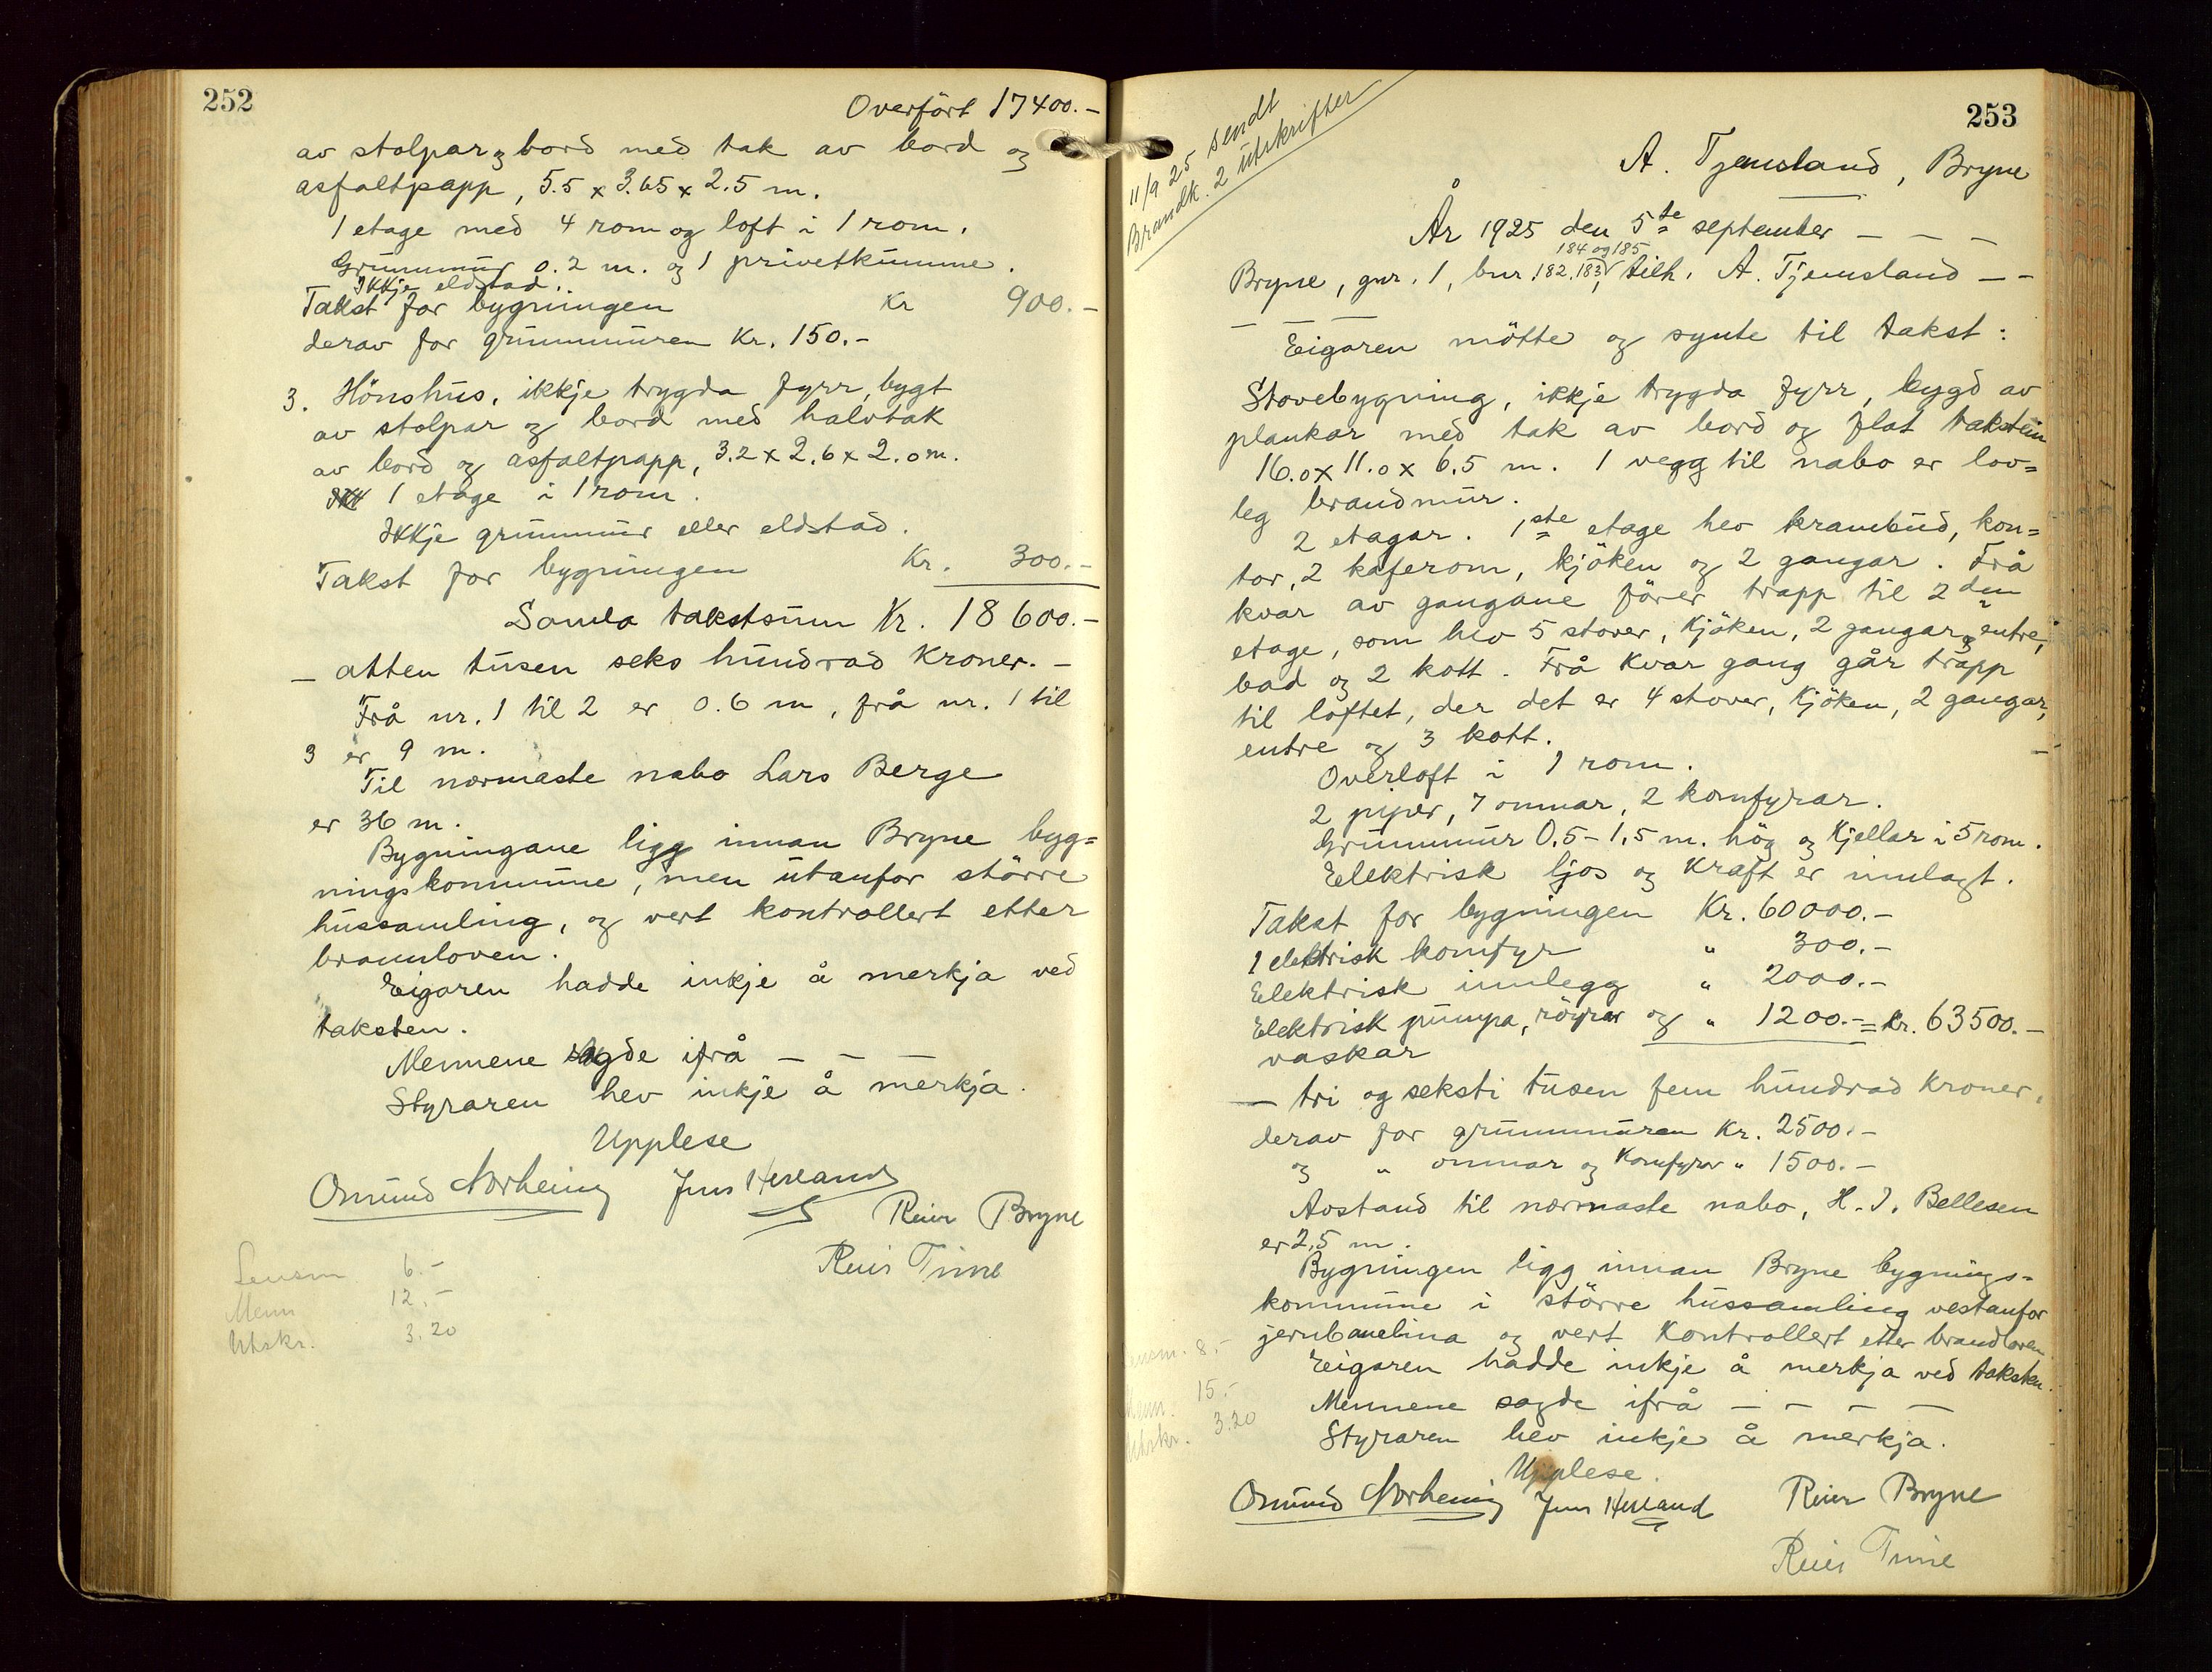 252
Overført 17400.-
av stolpar og bord med tak av bord og
asfaltpapp, 5.5 x 3.65 x 2.5 m.
1 etage med 4 rom og loft i 1 rom.
Grunnmur 0.2 m. og 1 privetkumme.
Ikkje eldstad.
Takst for bygningen Kr 900.-
derav for grunnmuren Kr. 150.-
3. Hönshus, ikkje trygda fyrr, bygt
av stolpar og bord med halvtak
av bord og asfaltpapp, 3.2 x 2.6 x 2.0 m.
1 etage i 1 rom.
Ikkje grunnmur eller eldstad.
Takst for bygningen Kr. 300.-
Samla takstsum Kr. 18600.-
- atten tusen seks hundrad kroner. -
Frå nr. 1 til 2 er 0.6 m, frå nr. 1 til
3 er 9 m.
Til nærmaste nabo Lars Berge
er 36 m.
Bygningane ligg innan Bryne byg=
ningskommune, men utanfor större
hussamling, og vert kontrollert etter
brannloven.
Eigaren hadde inkje å merkja ved
taksten.
Mennene sagde ifrå - - -
Styraren hev inkje å merkja.
Upplese
Omund Norheim Jens Herland
Reier Bryne
Reier Time
Lensm 6.-
Menn 12.-
Utskr. 3.20
253
11/9 25 sendt
Brandk. 2 utskrifter
A. Tjemsland, Bryne
År 1925 den 5te september - - -
184 og 185
Bryne, gnr. 1, bnr 182, 183, tilh. A. Tjemsland - -
- Eigaren mötte og synte til takst:
Stovebygning, ikkje trygda fyrr, bygd av
plankar med tak av bord og flat takstein
16.0 x 11.0 x 6.5 m. 1 vegg til nabo er lov=
leg brandmur.
2 etagar. 1ste etage hev krambud, kon=
tor, 2 kaferom, kjöken og 2 gangar. Frå
kvar av gangane förer trapp til 2den
etage, som hev 5 stover, kjöken, 2 gangar, entre,
bad og 2 kott. Frå kvar gang går trapp
til loftet, der det er 4 stover, kjöken, 2 gangar,
entre og 3 kott. -
Overloft i 1 rom.
2 piper, 7 omnar, 2 komfyrar.
Grunnmur 0.5 - 1.5 m. hög og kjellar i 5 rom.
Elektrisk ljos og kraft er innlagt.
Takst for bygningen Kr. 60000.-
1 elektrisk komfyr " 300.-
Elektrisk innlegg " 2000.-
Elektrisk pumpa, röyrar og " 1200.- = kr. 63500.-
vaskar
- tri og seksti tusen fem hundrad kroner.
derav for grunnmuren Kr. 2500.-
og " omnar og komfyrar " 1500.-
Avstand til nærmaste nabo, H. J. Bellesen
er 2.5 m.
Bygningen ligg innan Bryne bygnings-
kommune i större hussamling vestanfor
jernbanelina og vert kontrollert etter brandloven.
Eigaren hadde inkje å merkja ved taksten.
Mennene sagde ifrå - - - -
Styraren hev inkje å merkja.
Upplese.
Omund Norheim Jens Herland Reier Bryne
Reier Time
Lensm. 8.-
Menn. 15.-
Utskr. 3.20